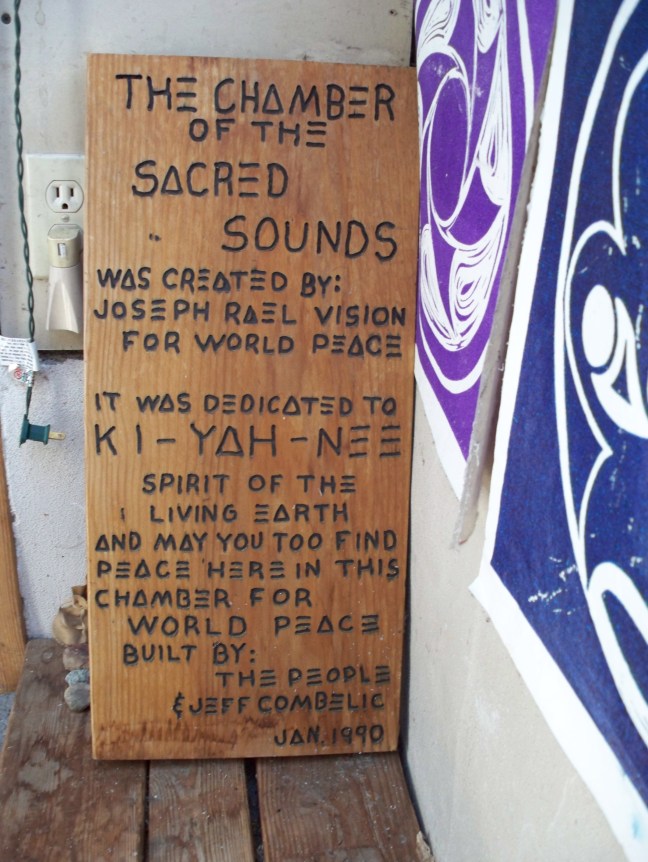 THE CHAMBER
OF THE
SACRED
SOUNDS
WAS CREATED BY:
JOSEPH RAEL VISION
FOR WORLD PEACE
IT WAS DEDICATED TO
KI-YAH-NEE
SPIRIT OF THE
LIVING EARTH
AND MAY YOU TOO FIND
PEACE HERE IN THIS
CHAMBER FOR
WORLD PEACE
BUILT BY:
THE PEOPLE
& JEFF COMBELIC
JAN. 1990